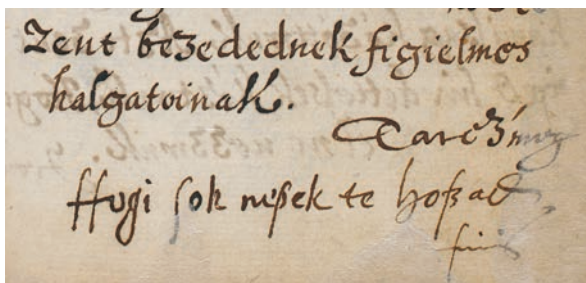 Zent bezedednek figielmos
halgatoinak.
Tarcz meg
Hogi sok nepek te hoßad
finis